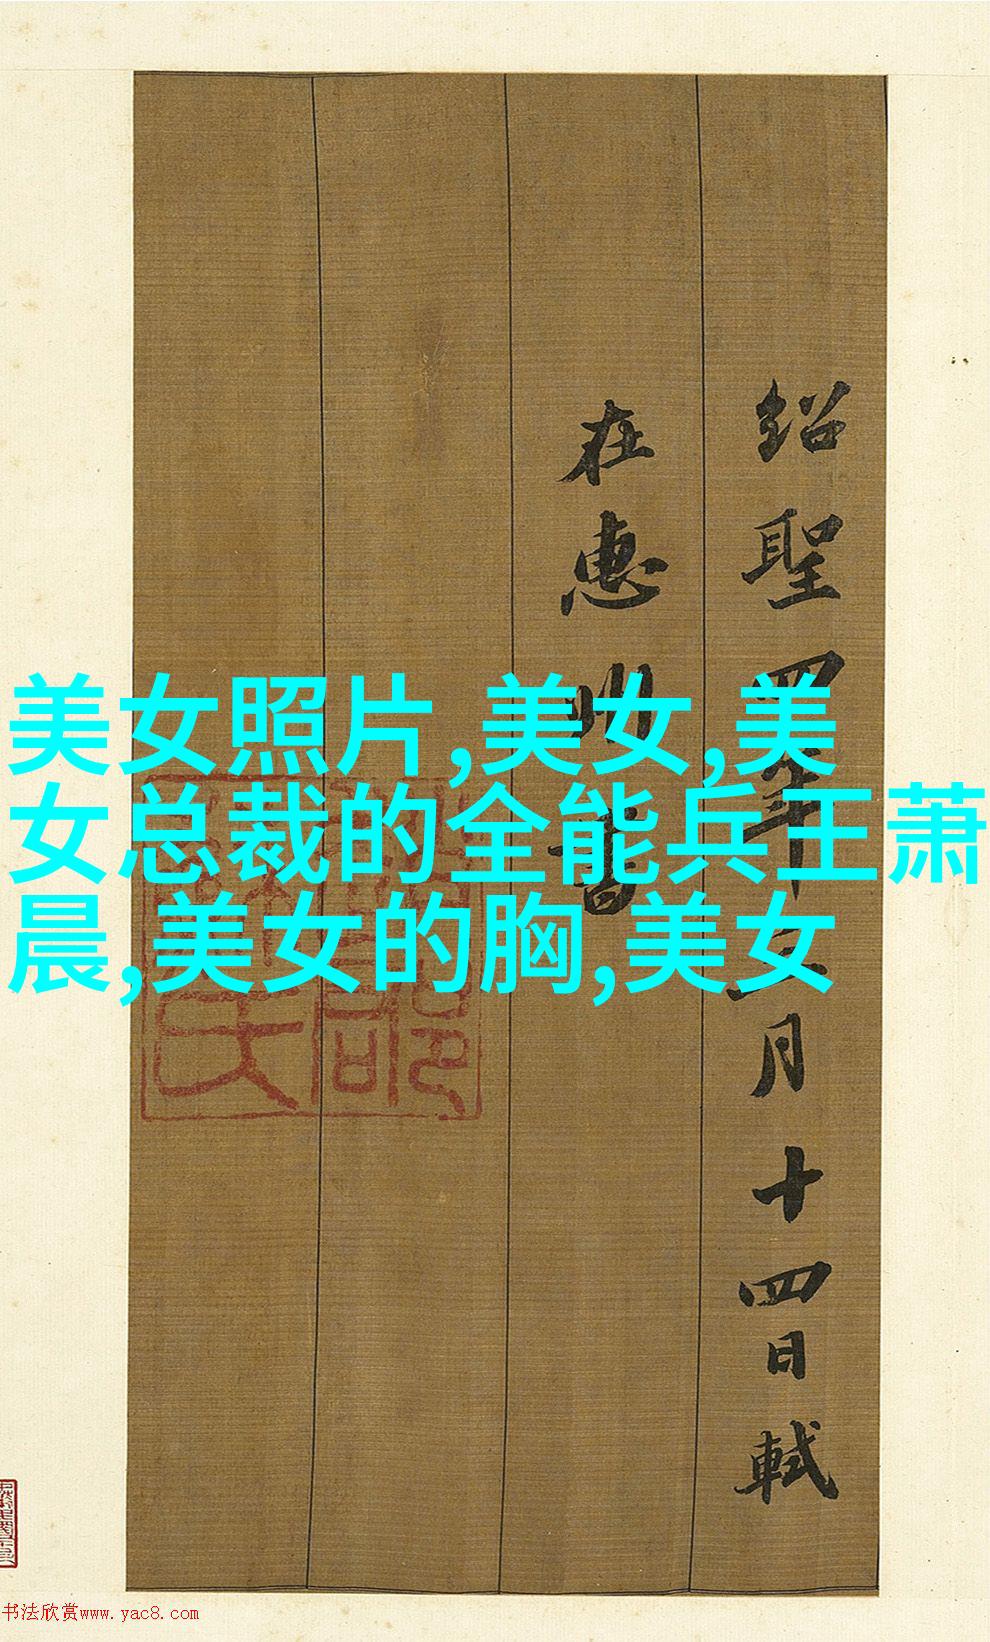 绍聖四年二月十四日軾
在惠州書
美女照片,美女,美
女总裁的全能兵王萧
晨,美女的胸,美女
书法欣赏www.yac8.com